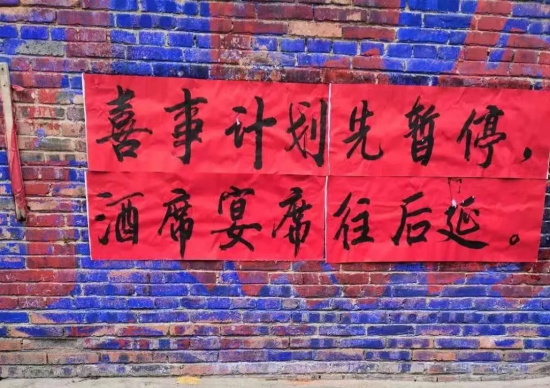 喜事计划先暂停，
酒席宴席往后延。